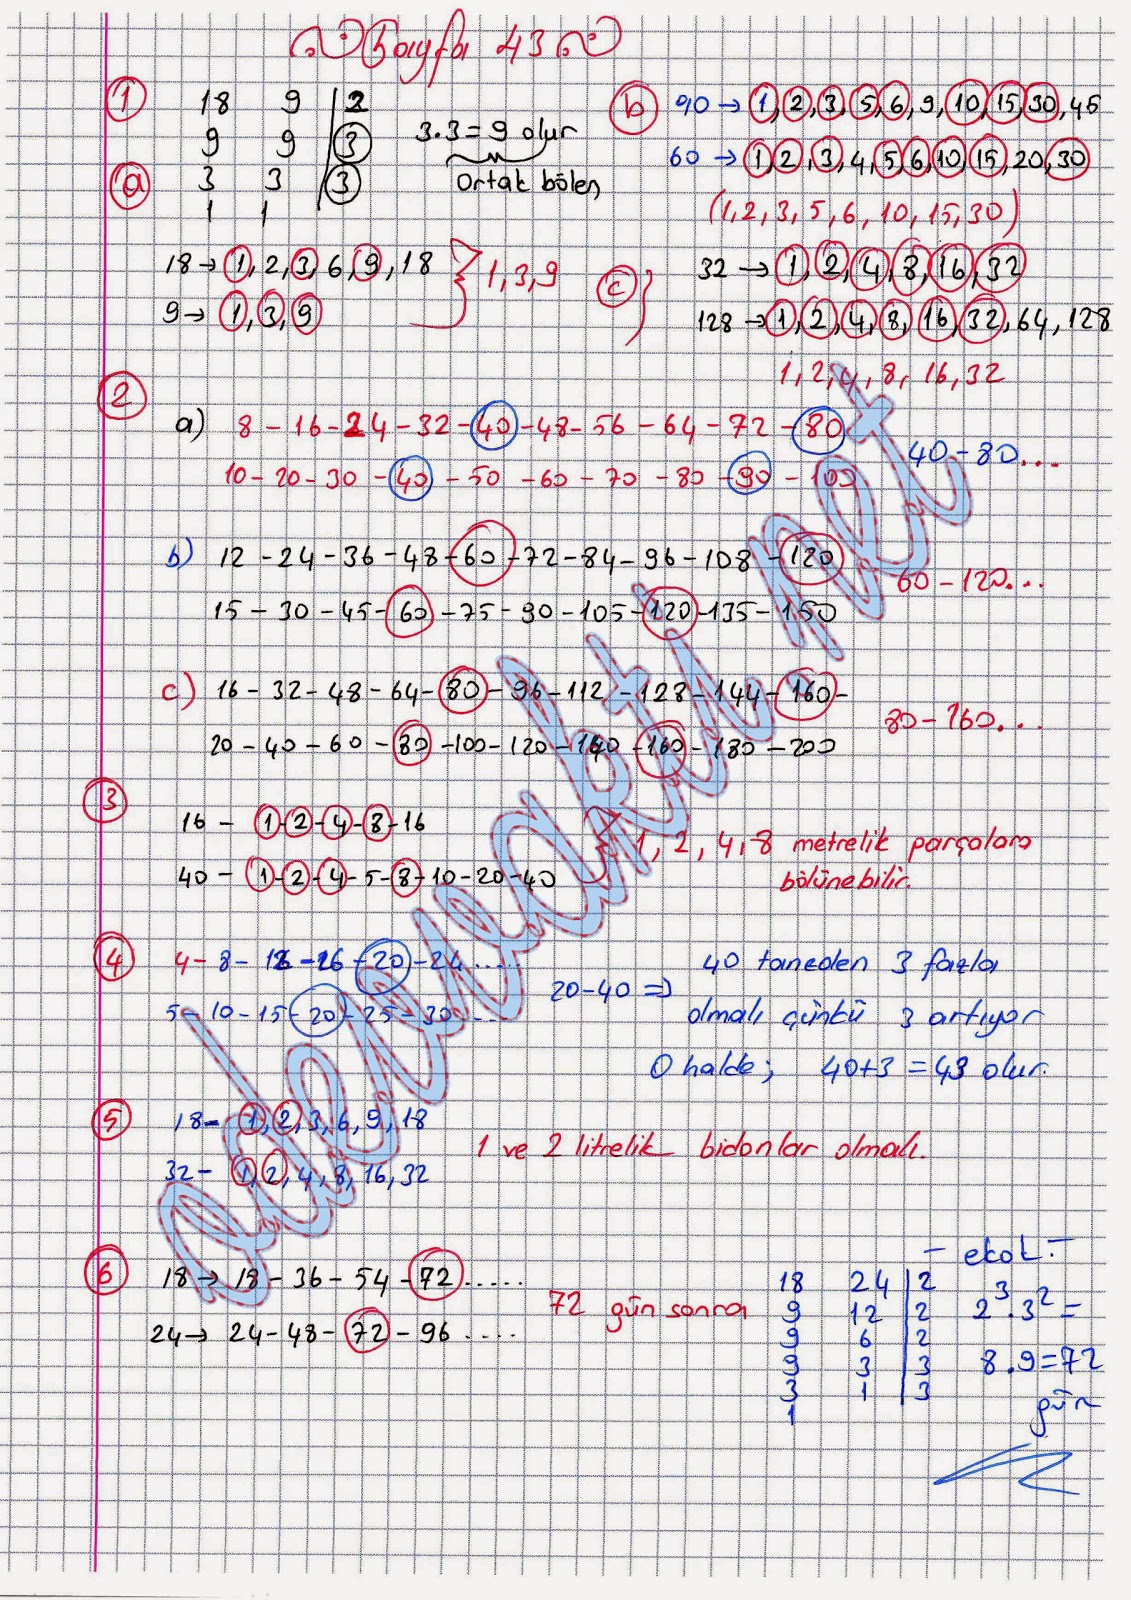 Sayfa 43
1
18 9 | 2
9 9 | 3
3 3 | 3
1 1
3.3=9 olur
Ortak bölen
a
18→ 1, 2, 3, 6, 9, 18
9→ 1, 3, 9
1, 3, 9
b 90→ 1, 2, 3, 5, 6, 9, 10, 15, 30, 45
60→ 1, 2, 3, 4, 5, 6, 10, 15, 20, 30
(1, 2, 3, 5, 6, 10, 15, 30)
c 32→ 1, 2, 4, 8, 16, 32
128→ 1, 2, 4, 8, 16, 32, 64, 128
1, 2, 4, 8, 16, 32
2
a) 8-16-24-32-40-48-56-64-72-80
10-20-30-40-50-60-70-80-90-100
40-80...
b) 12-24-36-48-60-72-84-96-108-120
15-30-45-60-75-90-105-120-135-150
60-120...
c) 16-32-48-64-80-96-112-128-144-160-
20-40-60-80-100-120-140-160-180-200
80-160...
3
16- 1-2-4-8-16
40- 1-2-4-5-8-10-20-40
1, 2, 4, 8 metrelik parçalara
bölünebilir.
4 4-8-12-16-20-24.....
5-10-15-20-25-30....
20-40 ⇒
40 taneden 3 fazla
olmalı çünkü 3 artıyor
O halde; 40+3=43 olur.
5 18- 1, 2, 3, 6, 9, 18
32- 1, 2, 4, 8, 16, 32
1 ve 2 litrelik bidonlar olmalı.
6 18→ 18-36-54-72.....
24→ 24-48-72-96....
72 gün sonra
- ekok -
18 24 | 2
9 12 | 2
9 6 | 2
9 3 | 3
3 1 | 3
1
2³.3²=
8.9=72
gün
odevvakti.net